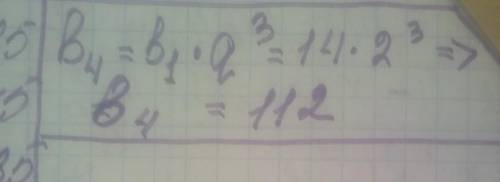 b₄ = b₁ · q³ = 14 · 2³ =>
b₄ = 112